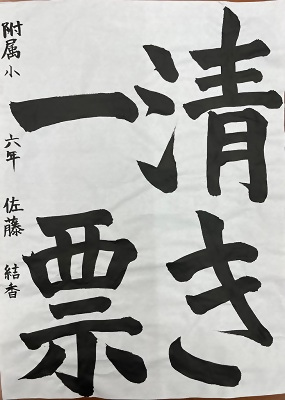 清き
一票
附属小 六年 佐藤 結香